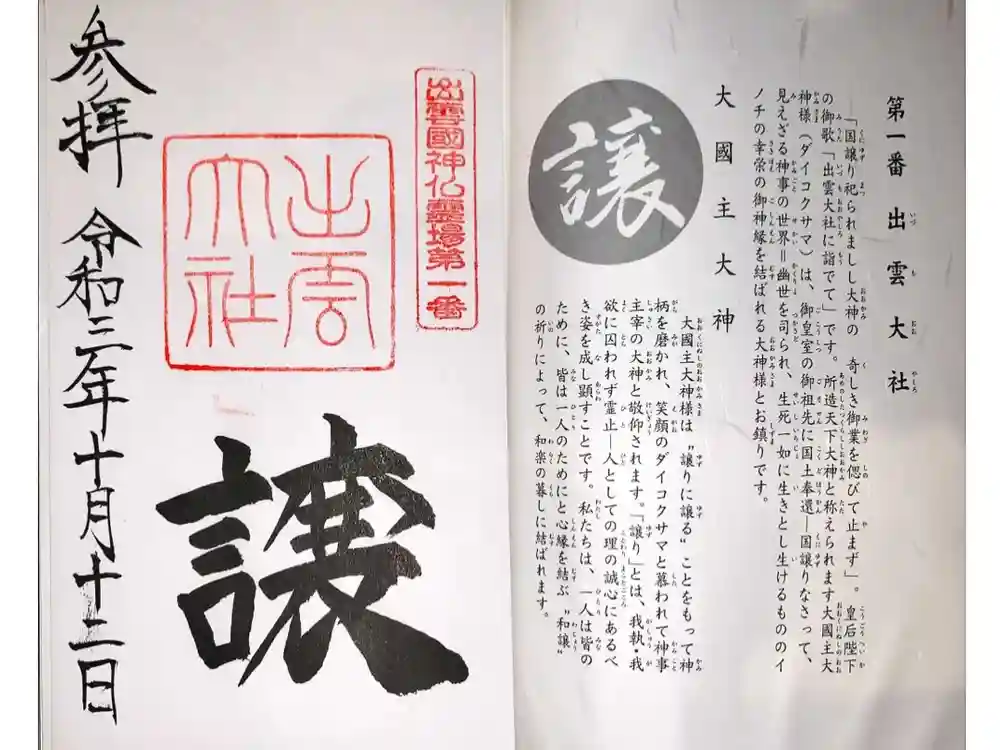 第一番 出雲大社
「国譲り祀られましし大神の 奇しき御業を偲びて止まず」。皇后陛下
の御歌「出雲大社に詣でて」です。所造天下大神と称えられます大國主大
神様(ダイコクサマ)は、御皇室の御祖先に国土奉還―国譲りなさって、
見えざる神事の世界=幽世を司られ、生死一如に生きとし生けるもののイ
ノチの幸栄の御神縁を結ばれる大神様とお鎮りです。
大國主大神
譲
大國主大神様は〝譲りに譲る〟ことをもって神
柄を磨かれ、笑顔のダイコクサマと慕われて神事
主宰の大神と敬仰されます。「譲り」とは、我執・我
欲に囚われず霊止―人としての理の誠心にあるべ
き姿を成し顕すことです。私たちは、一人は皆の
ために、皆は一人のためにと心縁を結ぶ〝和譲〟
の祈りによって、和楽の暮しに結ばれます。
出雲國神仏霊場第一番
出雲
大社
譲
参拝 令和三年十月十二日